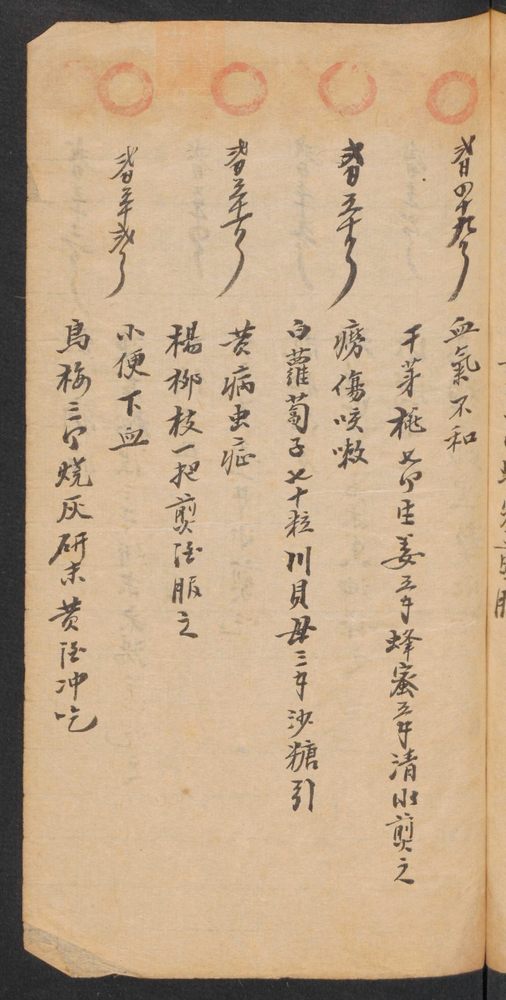 四十九
血氣不和
干芽桃七个生姜五 蜂蜜五 清水煎之
五十
癆傷咳嗽
白蘿蔔子七十粒川貝母三 沙糖引
五十一
黄病虫症
楊柳枝一把煎酒服之
五十弍
小便下血
烏梅三个燒灰研末黄酒冲吃